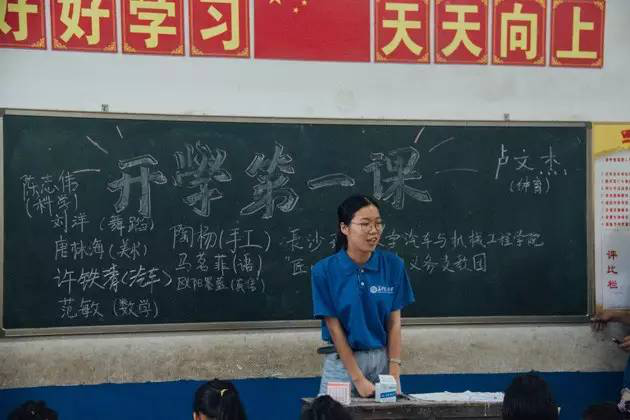 好好学习
天天向上
开学第一课
陈志伟
(科学)
刘洋(舞蹈)
唐林海(美术)
许铁青(汽车)
范敏(数学)
陶杨(手工)
马茗菲(语)
欧阳
长沙
学汽车与机械工程学院
"匠
义务支教团
卢文杰
(体育)
评比栏